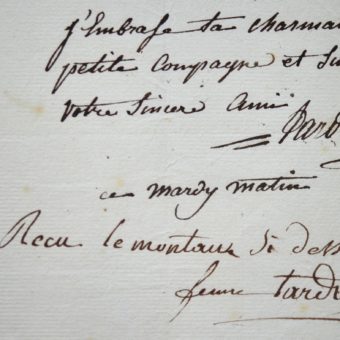 j'Embrasse ta charma
petite Compagne et Sui
Votre Sincere Amii
Tard
ce mardy matin
Recu le montant Si dess
femme tard